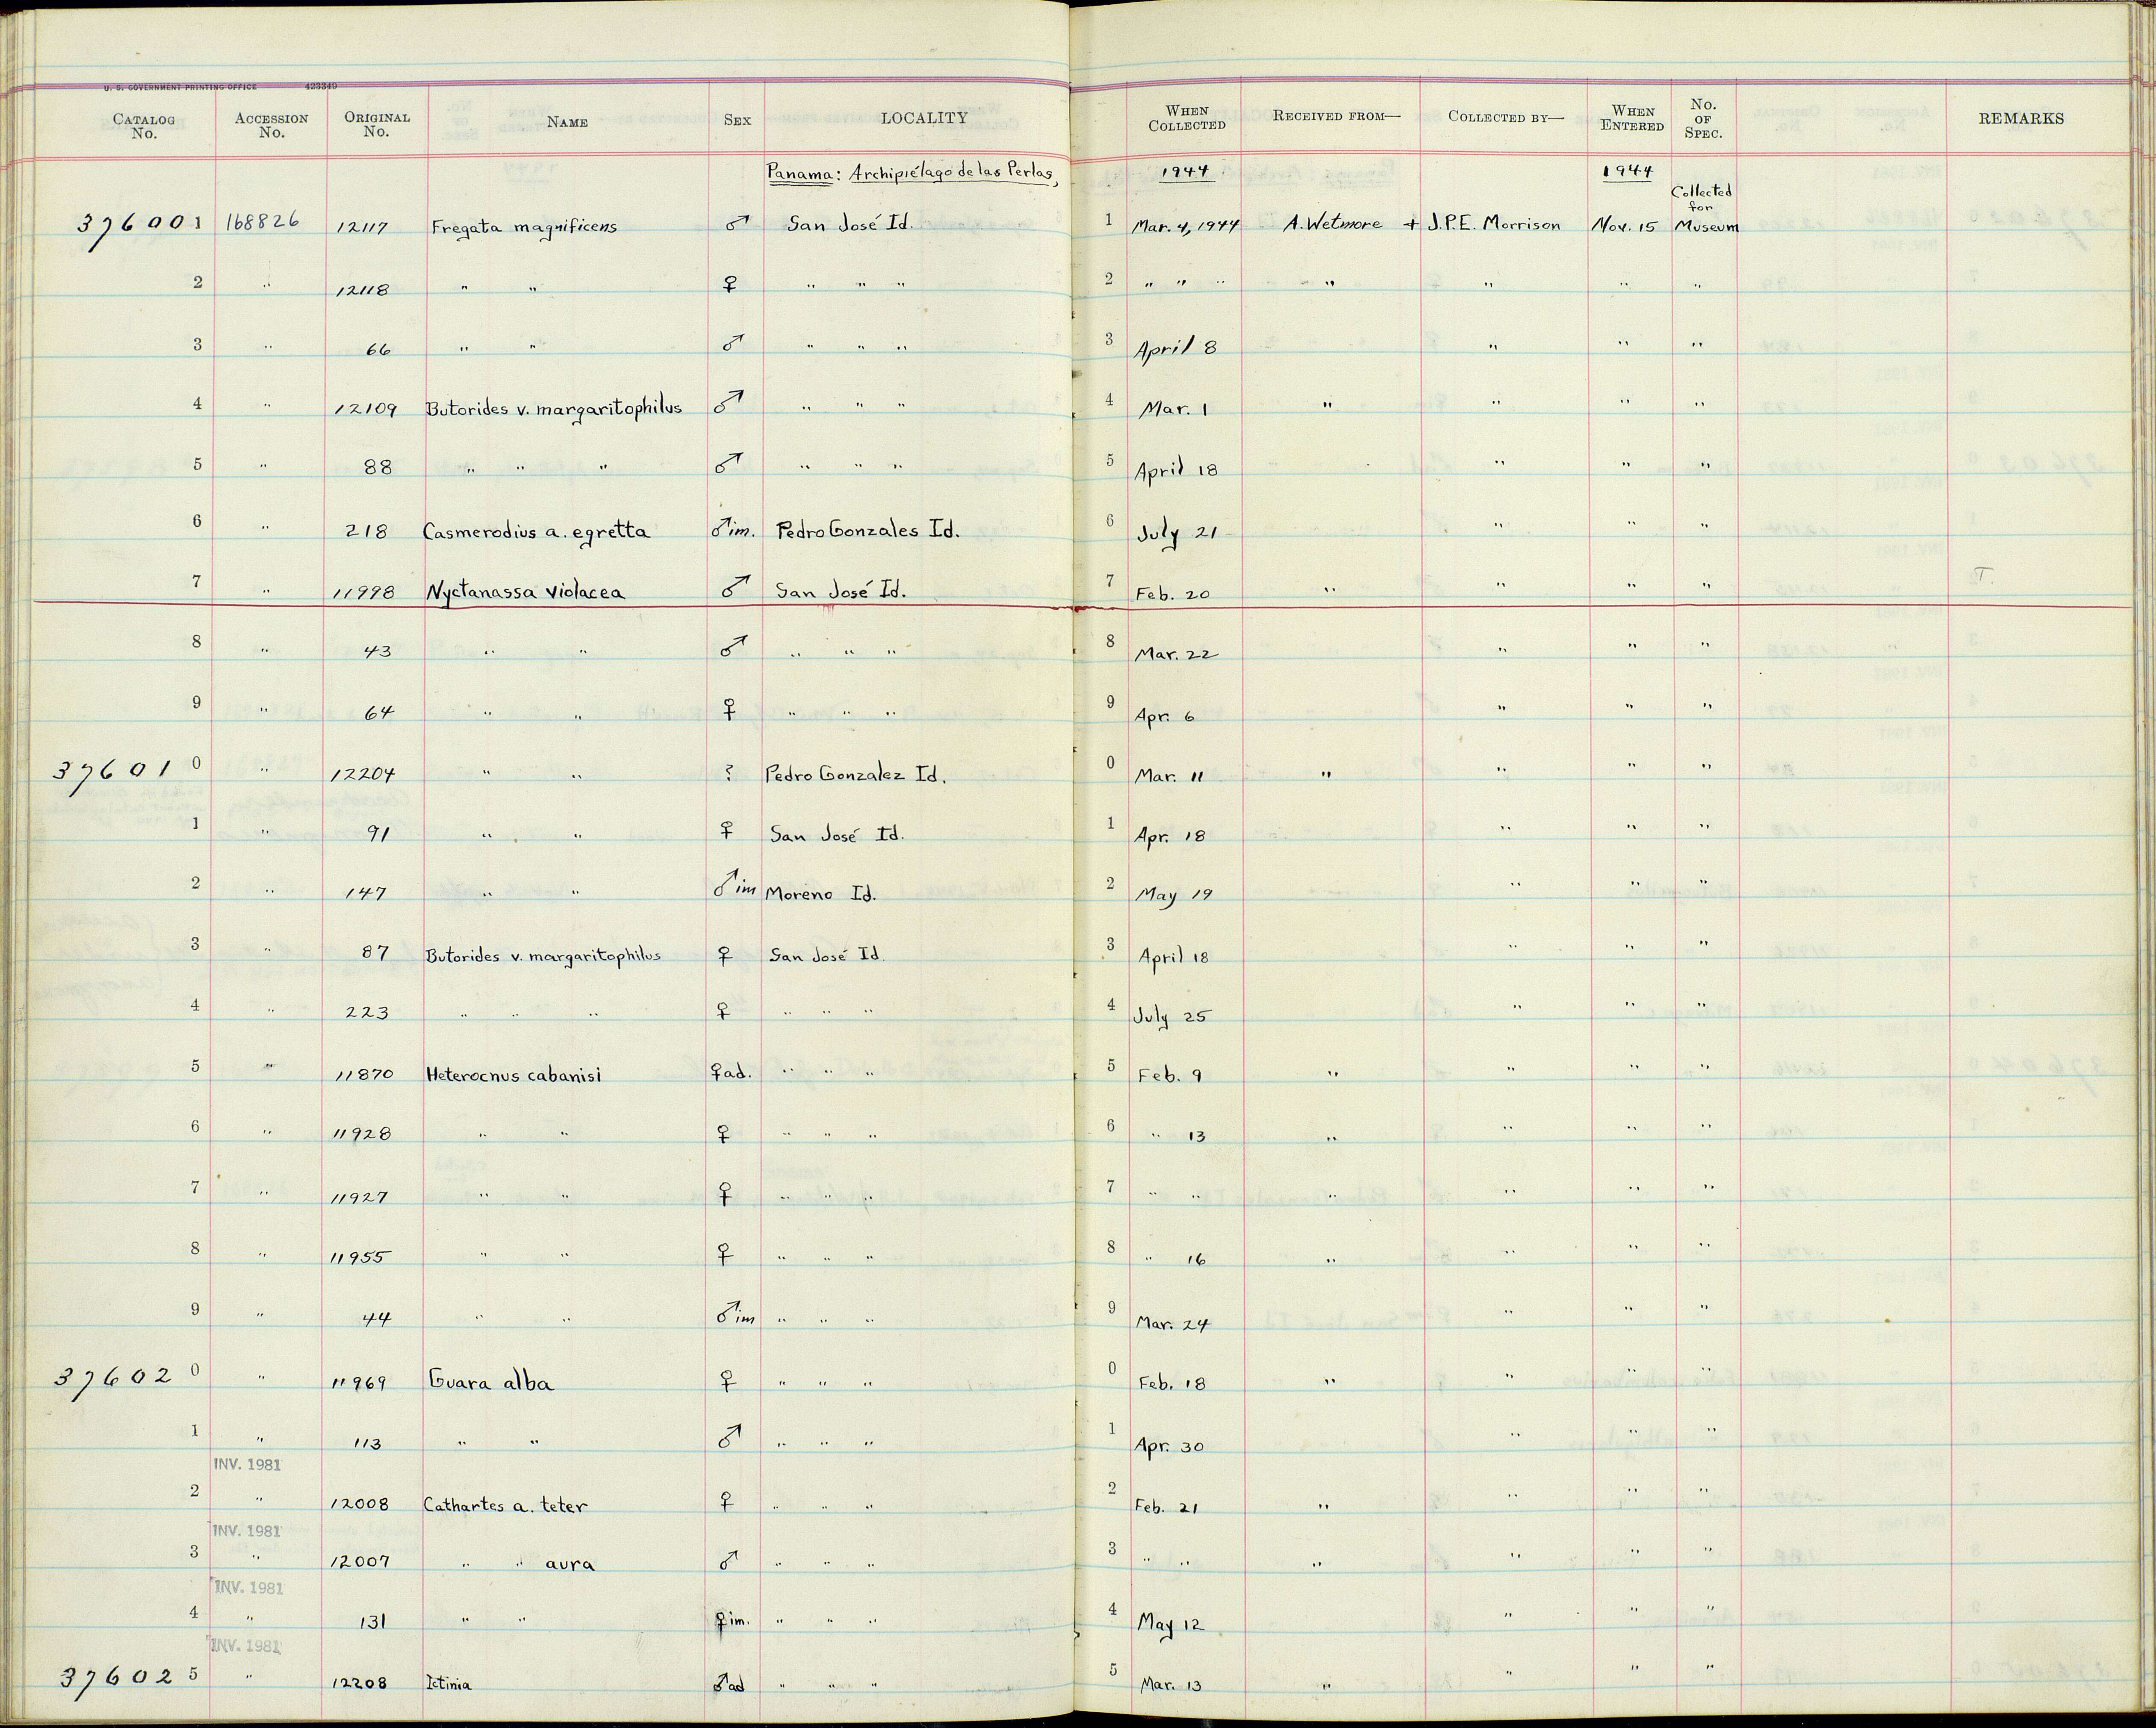 U. S. GOVERNMENT PRINTING OFFICE 423349
CATALOG No. ACCESSION No. ORIGINAL No. NAME SEX LOCALITY WHEN COLLECTED RECEIVED FROM— COLLECTED BY— WHEN ENTERED No. OF SPEC. REMARKS
Panama: Archipiélago de las Perlas, 1944 1944 Collected for
376001 168826 12117 Fregata magnificens ♂ San José Id. 1 Mar. 4, 1944 A. Wetmore + J.P.E. Morrison Nov. 15 Museum
2 " 12118 " " ♀ " " " 2 " " " " " " "
3 " 66 " " ♂ " " " 3 April 8 " " "
4 " 12109 Butorides v. margaritophilus ♂ " " " 4 Mar. 1 " " " "
5 " 88 " " " ♂ " " " 5 April 18 " " "
6 " 218 Casmerodius a. egretta ♂im. Pedro Gonzales Id. 6 July 21 " " "
7 " 11998 Nyctanassa violacea ♂ San José Id. 7 Feb. 20 " " " " T.
8 " 43 " " ♂ " " " 8 Mar. 22 " " "
9 " 64 " " ♀ " " " 9 Apr. 6 " " "
376010 " 12204 " " ? Pedro Gonzalez Id. 0 Mar. 11 " " " "
1 " 91 " " ♀ San José Id. 1 Apr. 18 " " "
2 " 147 " " ♂im Moreno Id. 2 May 19 " " "
3 " 87 Butorides v. margaritophilus ♀ San José Id. 3 April 18 " " "
4 " 223 " " " ♀ " " " 4 July 25 " " "
5 " 11870 Heterocnus cabanisi ♀ad. " " " 5 Feb. 9 " " " "
6 " 11928 " " ♀ " " " 6 " 13 " " " "
7 " 11927 " " ♀ " " " 7 " " " " " "
8 " 11955 " " ♀ " " " 8 " 16 " " " "
9 " 44 " " ♂im " " " 9 Mar. 24 " " "
376020 " 11969 Guara alba ♀ " " " 0 Feb. 18 " " " "
1 " 113 " " ♂ " " " 1 Apr. 30 " " "
INV. 1981
2 " 12008 Cathartes a. teter ♀ " " " 2 Feb. 21 " " " "
INV. 1981
3 " 12007 " " aura ♂ " " " 3 " " " " " "
INV. 1981
4 " 131 " " ♀im. " " " 4 May 12 " " "
INV. 1981
376025 " 12208 Ictinia ♂ad " " " 5 Mar. 13 " " " "